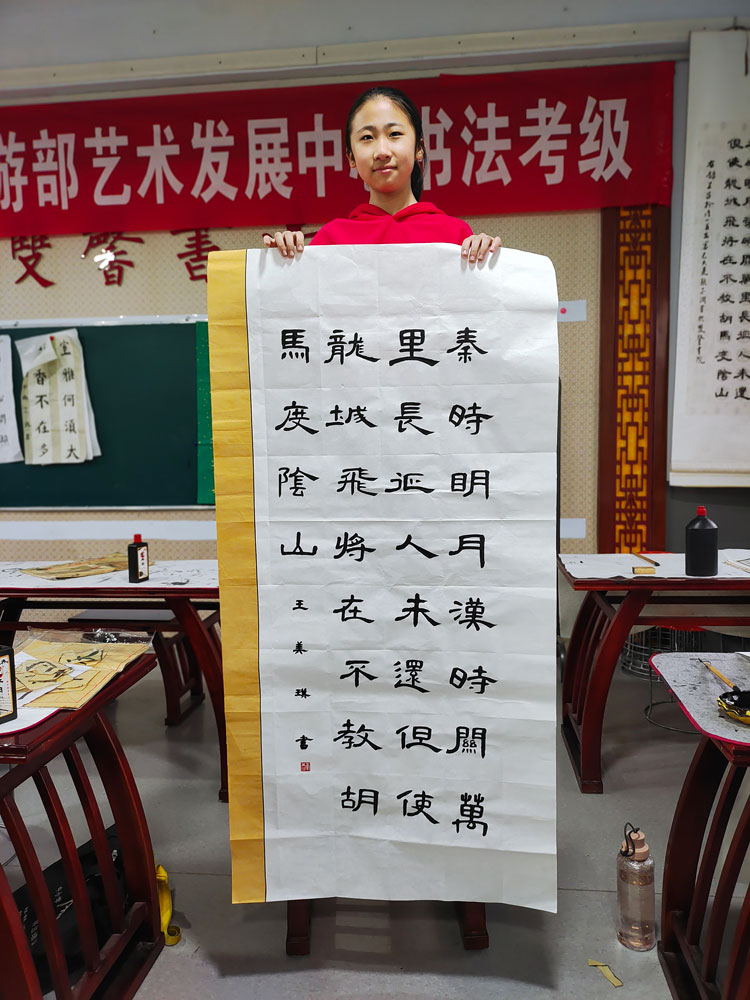 游部艺术发展中
书法考级
雙馨書
秦時明月漢時關萬
里長征人未還但使
龍城飛將在不教胡
馬度陰山
王美琪書
室雅何須大
香不在多
關萬里長征人未還
但使龍城飛將在不教胡馬度陰山